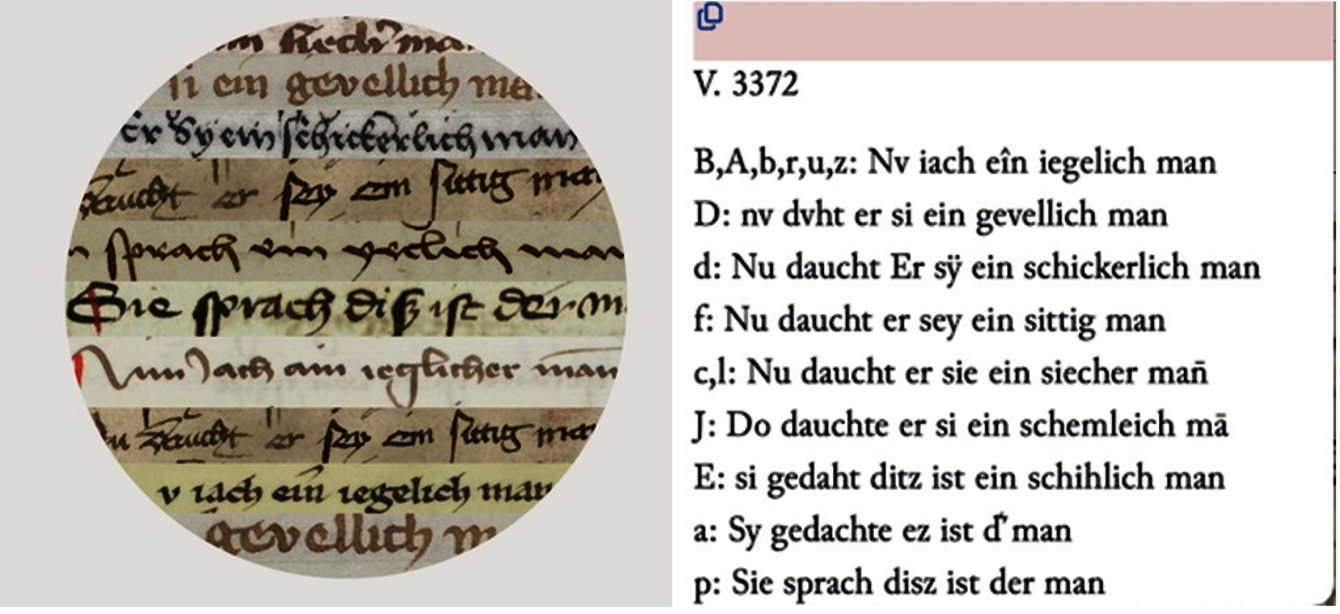 siech
si ein gevellich ma
er Sy ein schickerlich man
daucht er sey ein sittig ma
sprach ein yeclich man
Sie sprach disz ist der m
Nun Jach ain ieglicher man
u daucht er sey ein sittig ma
v iach ein iegelich man
gevellich m
V. 3372
B,A,b,r,u,z: Nv iach eîn iegelich man
D: nv dvht er si ein gevellich man
d: Nu daucht Er sÿ ein schickerlich man
f: Nu daucht er sey ein sittig man
c,l: Nu daucht er sie ein siecher man̄
J: Do dauchte er si ein schemleich mā
E: si gedaht ditz ist ein schihlich man
a: Sy gedachte ez ist d͛ man
p: Sie sprach disz ist der man